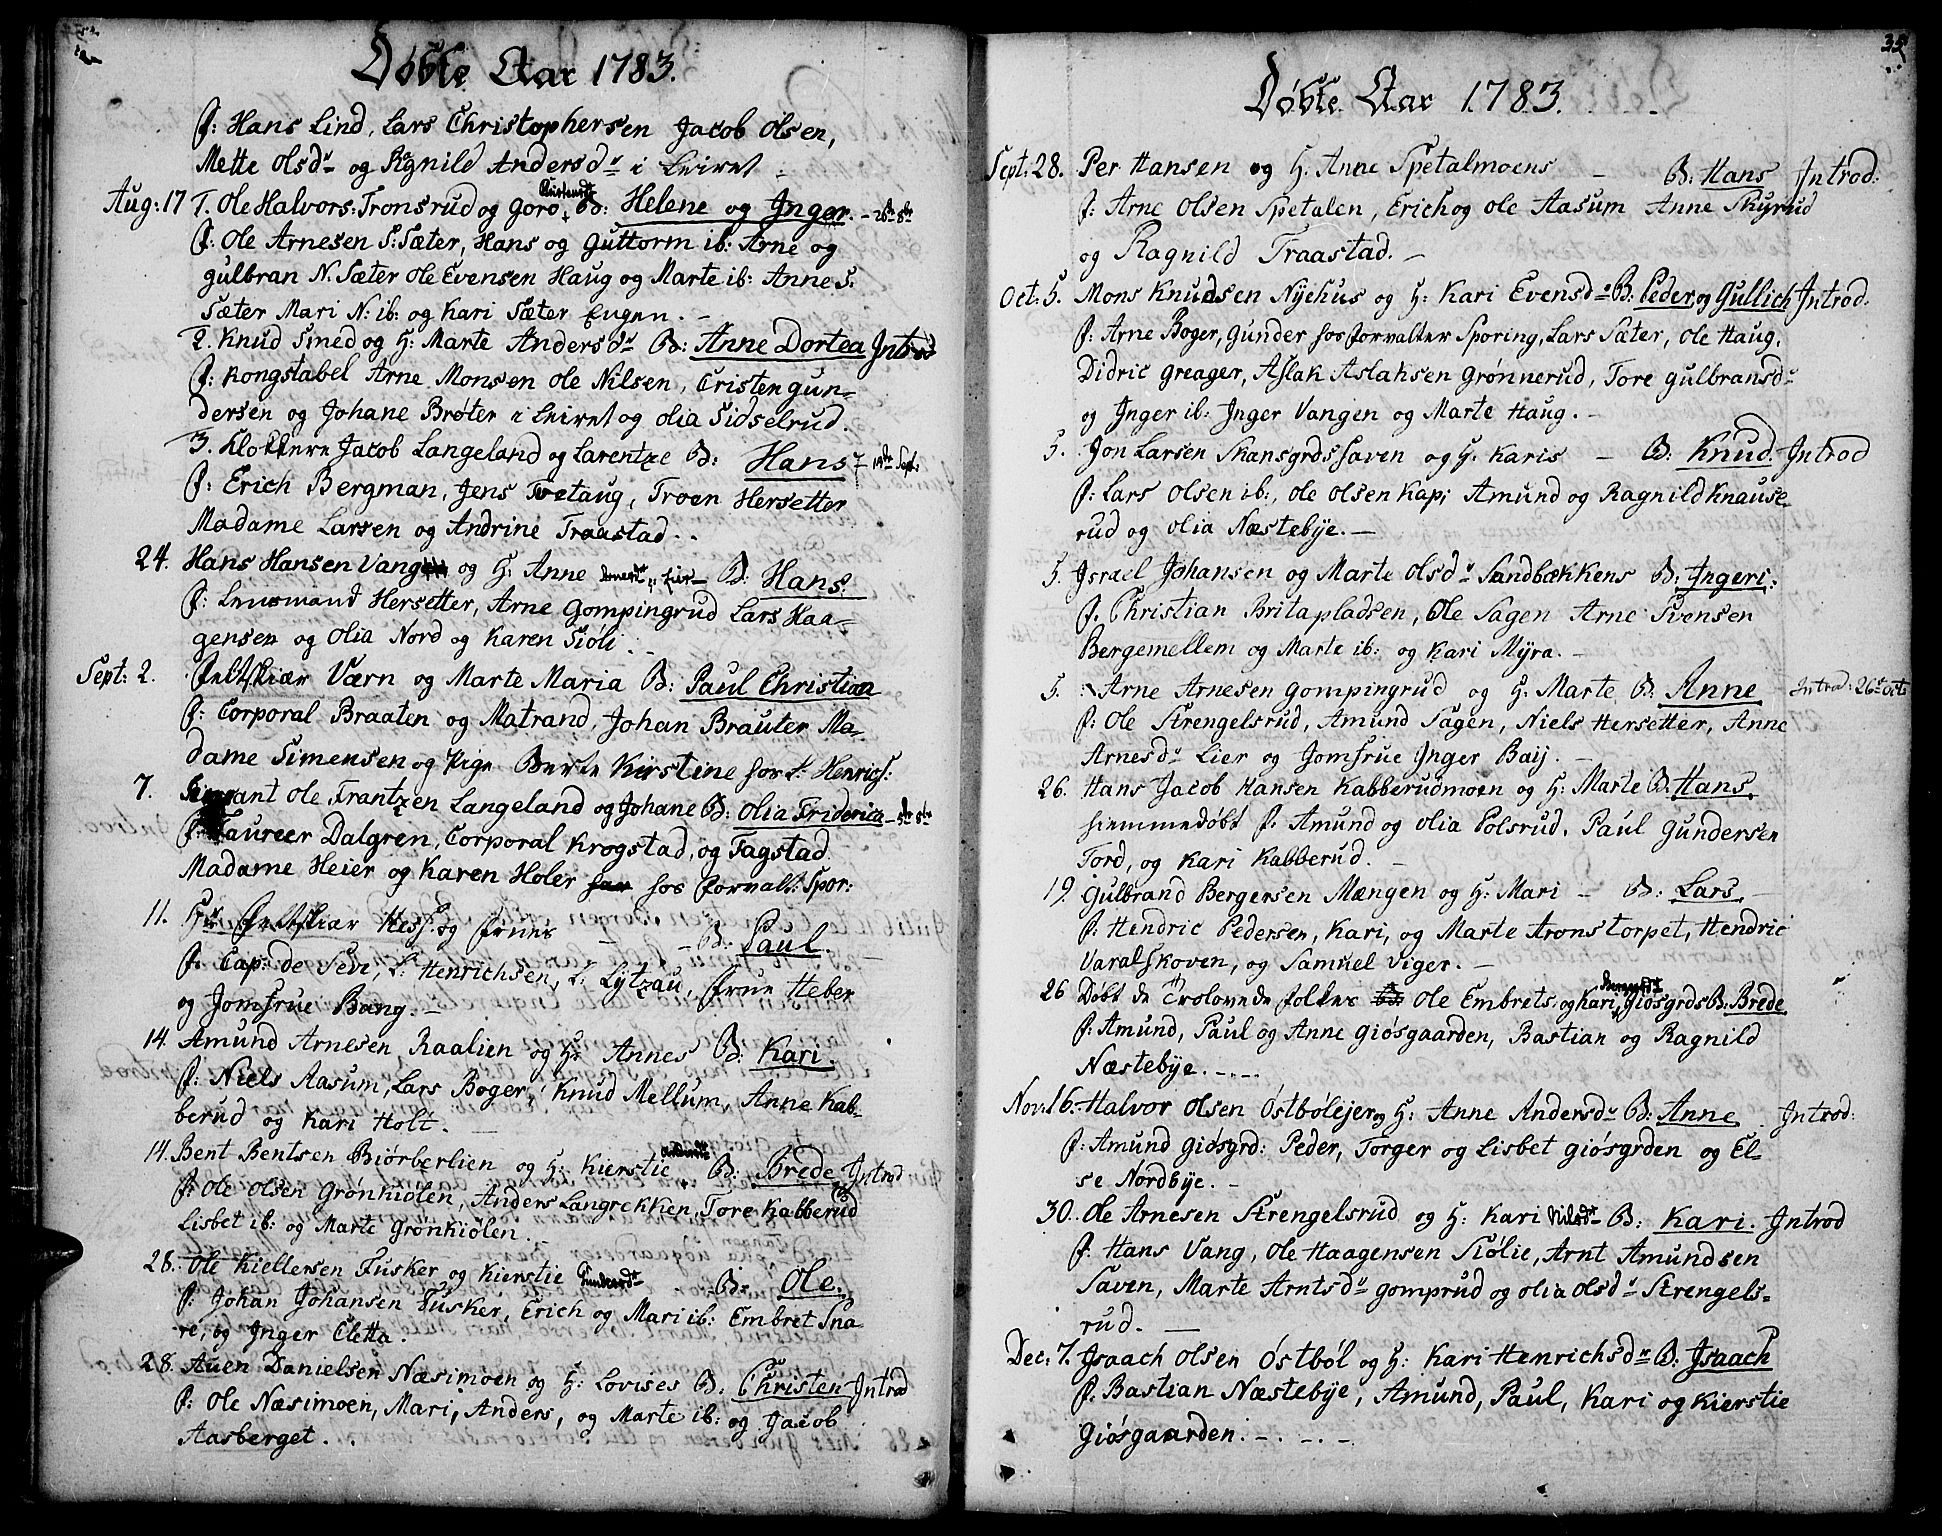 Døbte Aar 1783.
F: Hans Lind, Lars Christophersen Jacob Olsen,
Mette Olsdr og Ragnild Andersdr i Leiret
Aug: 17 1. Ole Halvors: Tronsrud og Goro B: Helene og Inger.
F: Ole Arnesen S: Sæter, Hans og Guttorm ib: Arne og
Gulbran N. Sæter Ole Evensen Haug og Marte ib: Anne S.
Sæter Mari N: ib: og Kari Sæter Eugen. -
2. Knud Smed og H: Marte Andersdr B: Anne Dortea Introd
F: Kongstabel Arne Monsen Ole Nilsen, Cristen Gun-
dersen og Johane Brøter i Leiret og Olia Sidselrud.
3. Klokkere Jacob Langeland og Larentze B: Hans
F: Erich Bergman, Jens Tvetaug, Troen Hersetter
Madame Larsen og Andrine Traastad..
24. Hans Hansen Vang og H. Anne Arnesdr B: Hans.
F: Lensmand Hersetter, Arne Gompingrud Lars Haa-
gensen og Olia Nord og Karen Siøli
Sept: 2. Feltskiær Værn og Marte Maria B: Paul Christian
F: Corporal Braaten og Matrand, Johan Brauter Ma-
dame Simensen og Pige Berte Kirstine hos L: Henrichs:
7. Ole Frantzen Langeland og Johane B: Olia Friderica
F: Faureer Dalgren, Corporal Krogstad, og Fagstad.
Madame Heier og Karen Holer hos Forvalt: Spor:
11. Hr Feltskiær Hess og Frues - B: Paul.
F: Cap: de Seve, L: Henrichsen, L. Lytzau, Frue Heber
og Jomfrue Bang. -
14. Amund Arnesen Raalien og H: Annes B: Kari.
F: Niels Aasum, Lars Boger, Knud Mellum, Anne Kab-
berud og Kari Holt. -
14. Bent Bentsen Biørberlien og H: Kierstie B: Brede Introd
F: Ole Olsen Grønkiølen, Anders Langrekken, Tore Kabberud
Lisbet ib: og Marte Grønkiølen.
28. Ole Kiellersen Fusker og Kierstie Gundersdr B: Ole.
F: Johan Johansen Fusker, Erich og Mari ib: Embret Sna
re, og Inger Cletta.
28. Auen Danielsen Næsimoen og H: Lovises B: Christen Introd
F: Ole Næsimoen, Mari, Anders, og Marte ib: og Jacob
Aasberget.
35
Døbte Aar 1783.
Sept: 28. Per Hansen og H. Anne Spetalmoens - B: Hans Introd:
F: Arne Olsen Spetalen, Erich og Ole Aasum Anne Skyrud
og Ragnild Traastad. -
Oct: 5. Mons Knudsen Nyehus og H: Kari Evensdr B: Peder og Gullich Introd.
F: Arne Boger, Gunder hos Forvalter Sporing, Lars Sæter, Ole Haug.
Didric Greager, Aslak Aslaksen Grønnerud, Tore Gulbransdr
og Inger ib: Inger Vangen og Marte Haug. -
5. Jon Larsen Skansgrdssaven og H: Karis - B: Knud. Introd
F: Lars Olsen ib:, Ole Olsen Kap; Amund og Ragnild Knause
rud og Olia Næstebye. -
5. Israel Johansen og Marte Olsdr Sandbækkens B: Ingeri.
F. Christian Britapladsen, Ole Sagen Arne Svensen
Bergemellem og Marte ib: og Kari Myra. -
5. Arne Arnesen Gompingrud og H: Marte B: Anne - Introd: 26t Oct
F: Ole Strengelsrud, Amund Sagen, Niels Hersetter, Anne
Arnesdr Lier og Jomfrue Inger Baij. -
26. Hans Jacob Hansen Kabberudmoen og H: Marte B: Hans.
hiemmedøbt F: Amund og Olia Polsrud, Paul Gundersen
Tord, og Kari Kabberud. -
19. Gulbrand Bergersen Mængen og H: Mari - B: Lars.
F: Hendric Pedersen, Kari, og Marte Aronstorpet, Hendric
Varalskoven, og Samuel Viger. -
26 Døbt de Trolovede folkes Ole Embrets. og Kari Giøsgrds B: Brede
F: Amund, Paul og Anne Giøsgaarden, Bastian og Ragnild
Næstebye. - - -
Nov: 16. Halvor Olsen Østbølejer og H: Anne Andersdr B: Anne Introd:
F: Amund Giøsgrd: Peder, Torger og Lisbet Giøsgrden og El-
se Nordbye. -
30. Ole Arnesen Strengelsrud og H: Kari Nilsdr B: Kari. Introd
F: Hans Vang, Ole Haagensen Siølie, Arnt Amundsen
Saven, Marte Arntsdr Gomprud og Olia Olsdr Strengels-
rud. -
Dec: 7. Isaach Olsen Østbøl og H: Kari Henrichsdr B: Isaach
F: Bastian Næstebye, Amund, Paul, Kari og Kierstie
Giøsgaarden. - . - . -